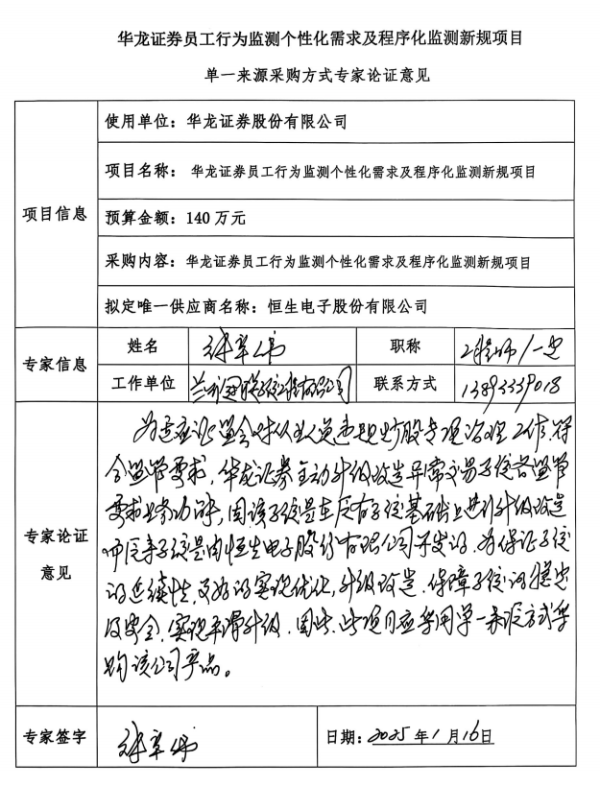 华龙证券员工行为监测个性化需求及程序化监测新规项目
单一来源采购方式专家论证意见
项目信息
使用单位：华龙证券股份有限公司
项目名称：华龙证券员工行为监测个性化需求及程序化监测新规项目
预算金额：140万元
采购内容：华龙证券员工行为监测个性化需求及程序化监测新规项目
拟定唯一供应商名称：恒生电子股份有限公司
专家信息
姓名
职称 工程师/
工作单位 系统工程有限公司
联系方式 13893339018
专家论证意见
为适应证监会对从业人员违规炒股专项治理工作，符
合监管要求，华龙证券主动升级改造异常交易系统各监管
要求业务功能，因该系统是在原有系统基础上进行升级改造
原系统是由恒生电子股份有限公司开发的，为保证系统
的连续性，更好的实现优化，升级改造，保障系统的稳定
及安全，实现平滑升级，因此，此项目应采用单一来源方式采
购该公司产品。
专家签字
日期：2025年1月16日